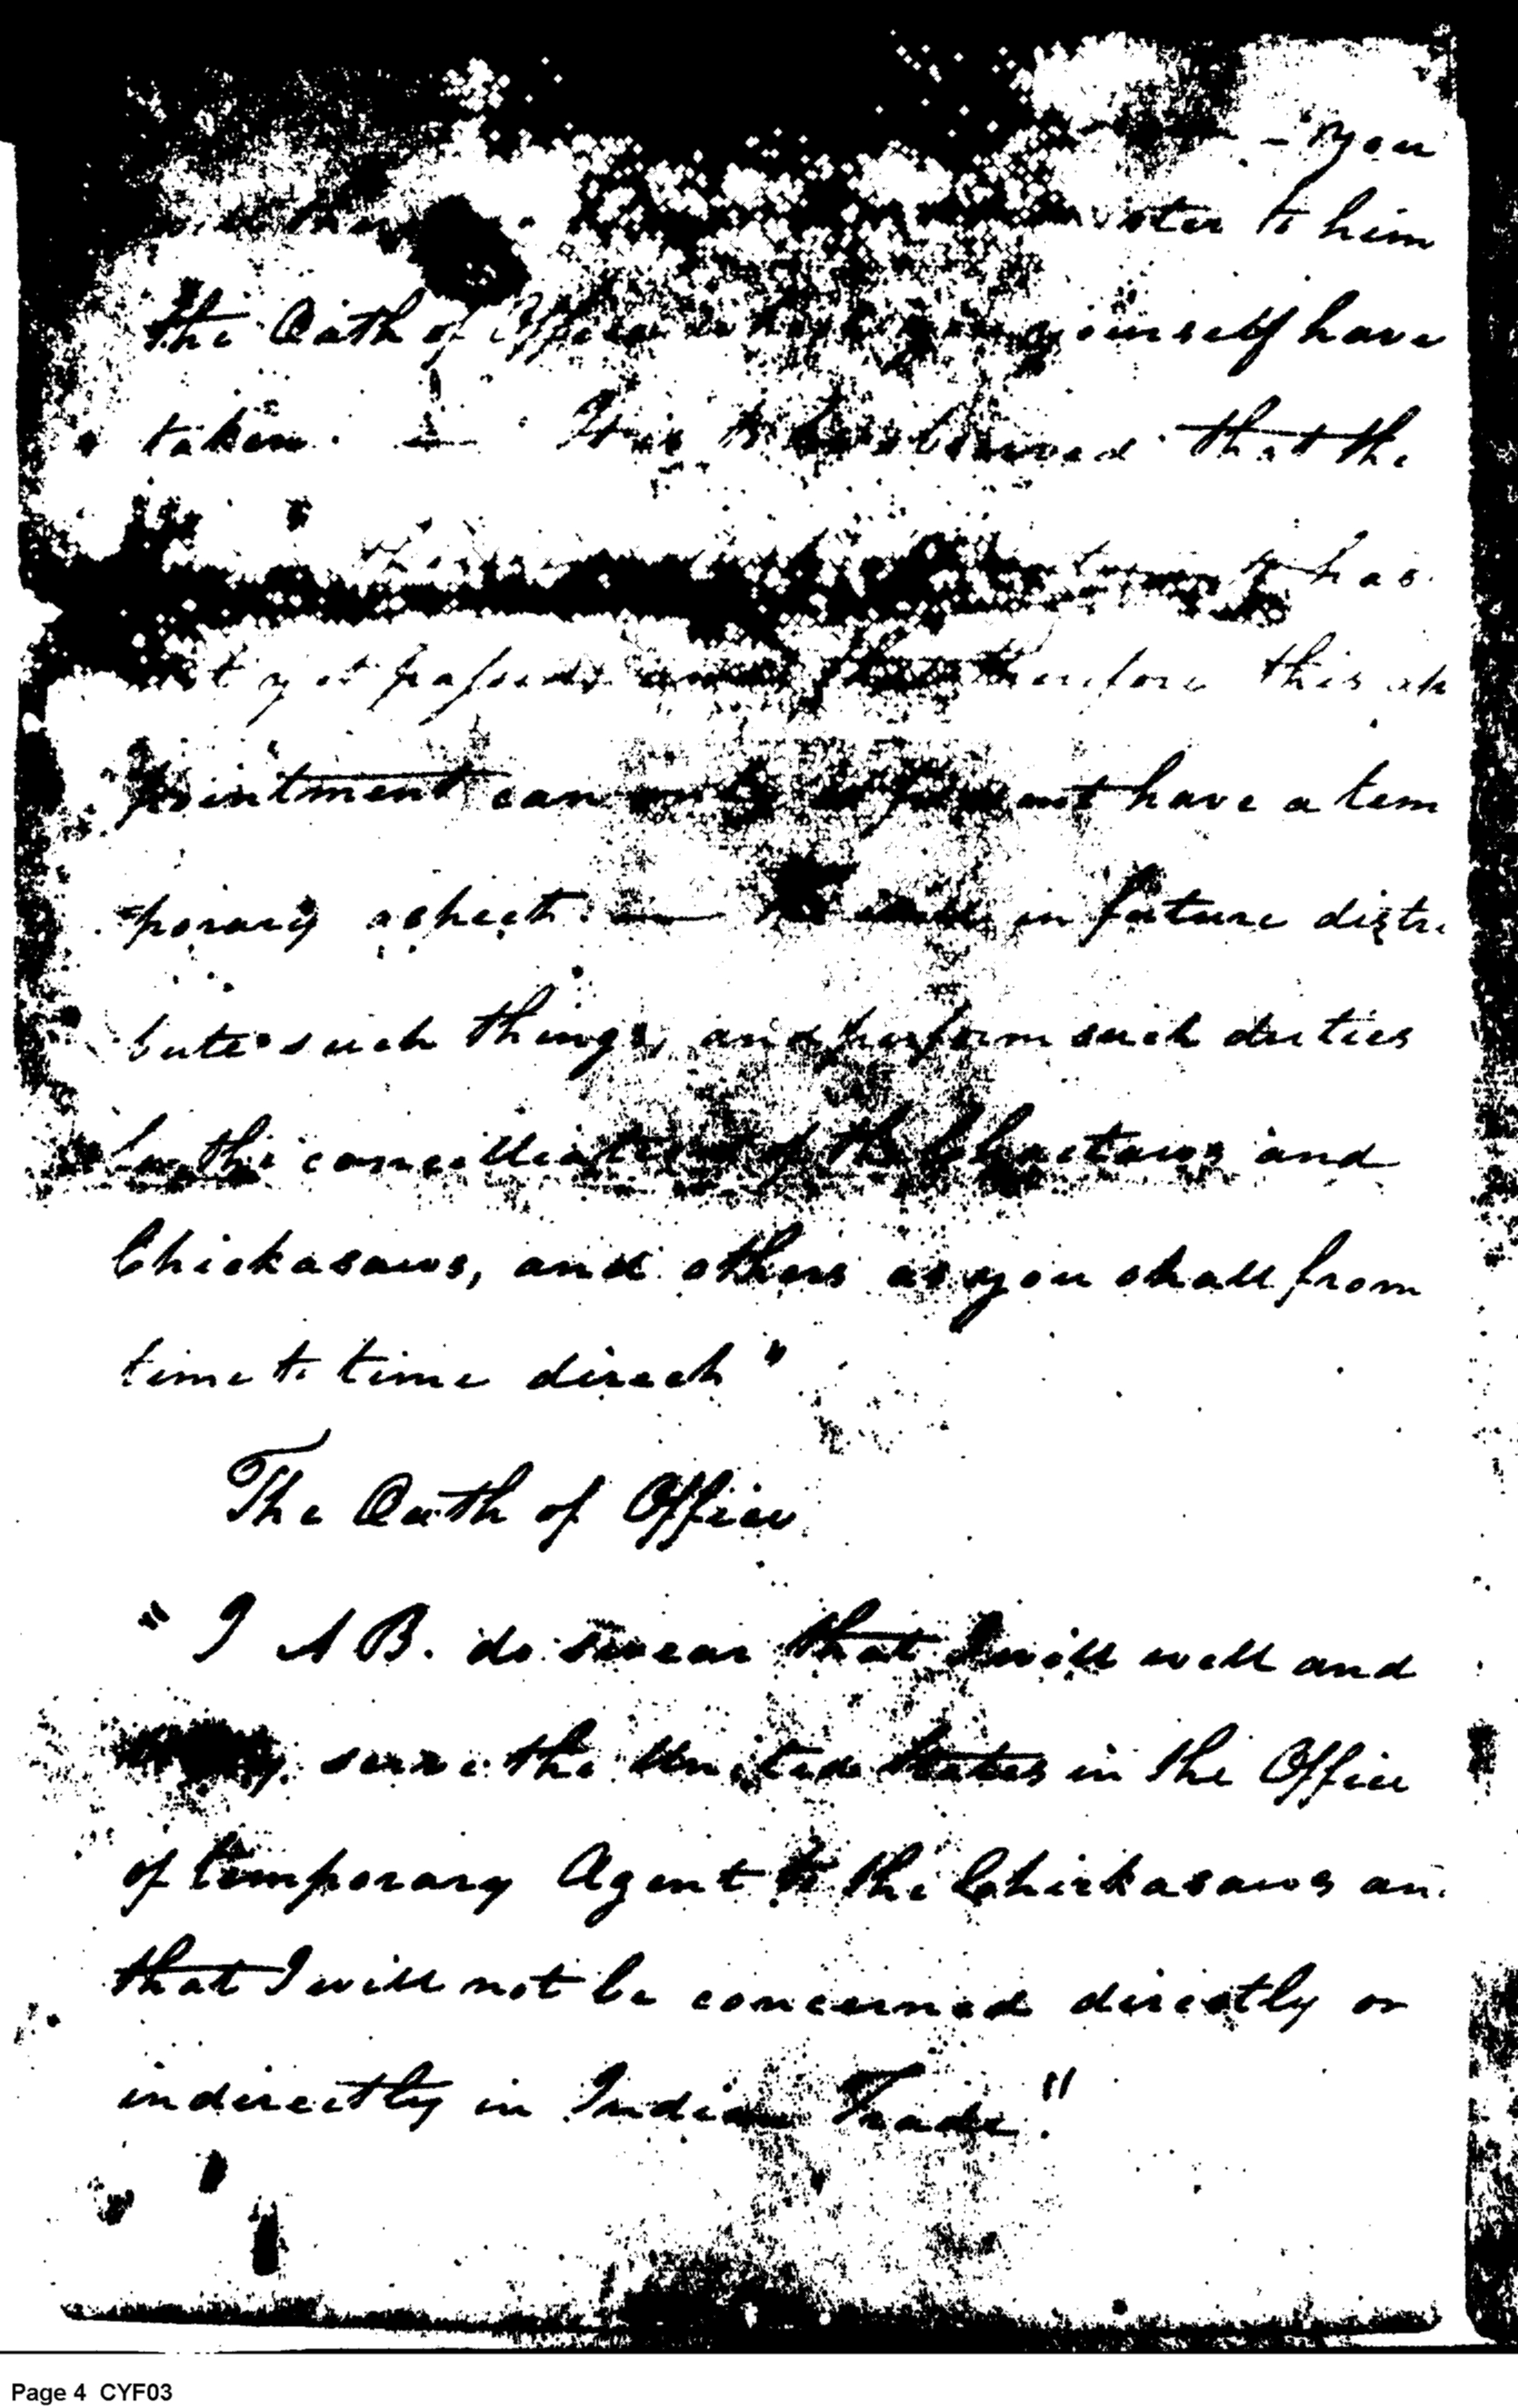 - You
to him
the Oath of Office which you yourself have
taken. — It is to be observed that the
has
yet passed and that therefore this ap
pointment can only at present have a tem
-porary aspect. — in future distri
bute such things, and perform such duties
for the concilliation of the Chactaws and
Chickasaws, and others as you shall from
time to time direct"
The Oath of Office
" I A B. do swear that I will well and
serve the United States in the Office
of temporary Agent to the Chickasaws an
that I will not be concerned directly or
indirectly in Indian Trade."
Page 4 CYF03